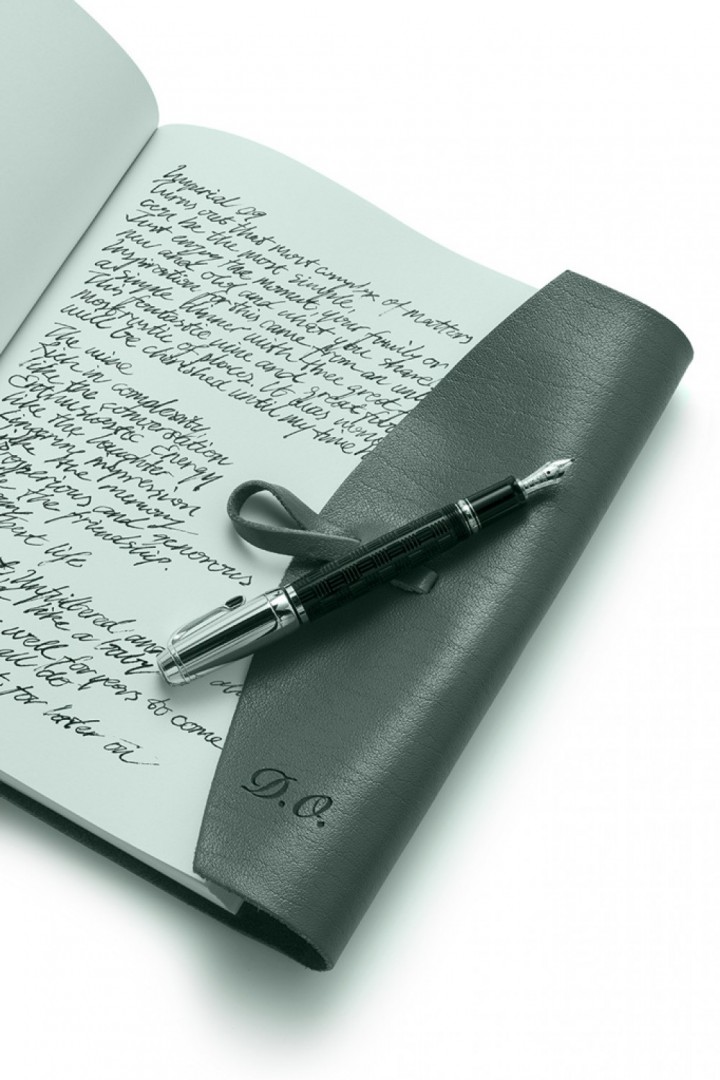 Imperial 09
Turns out that most complex of matters
can be the most simple.
Just enjoy the moment, your family or
new and old and what you share
Inspiration for this came from an
as simple dinner with three great
This fantastic wine and great
most rustic of places. It does
will be cherished until my time
The wine
Rich in complexity
like the conversation
Enthusiastic Energy
like the laughter
Lingering impression
like the memory
and generous
the friendship.
life
Unfiltered and
like a baby
well for years to come
all do
for later on
D.O.